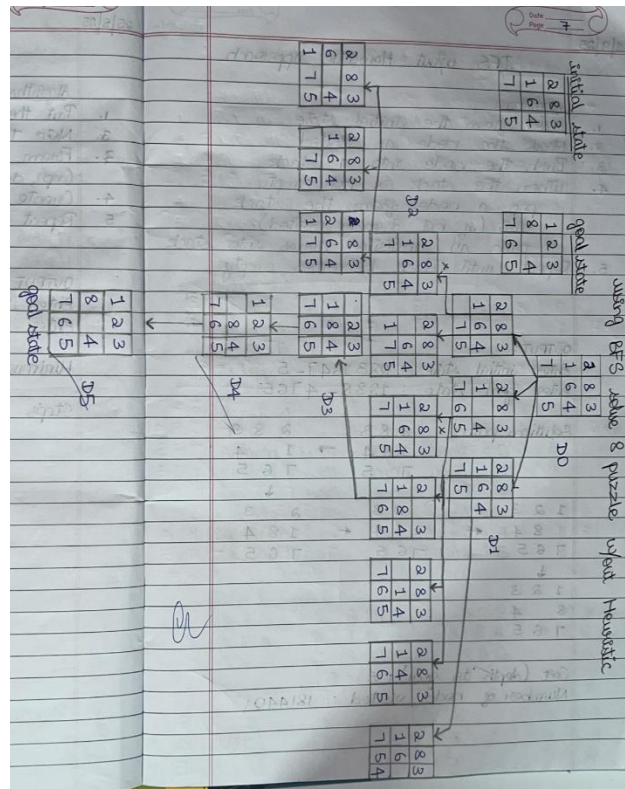 Date
Page 7
using BFS solve 8 puzzle w/out Heuristic
initial state
2 8 3
1 6 4
7 5
goal state
1 2 3
8 4
7 6 5
2 8 3
1 6 4
7 5
D0
2 8 3
1 6 4
7 5
2 8 3
1 4
7 6 5
2 8 3
1 6 4
7 5
D1
D2
2 8 3
1 6 4
7 5
2 8 3
6 4
1 7 5
2 8 3
1 6 4
7 5
2 3
1 8 4
7 6 5
2 8 3
1 4
7 6 5
2 8 3
1 4
7 6 5
2 8 3
1 6
7 5 4
2 8 3
6 4
1 7 5
2 8 3
1 6 4
7 5
8 3
2 6 4
1 7 5
2 3
1 8 4
7 6 5
D3
1 2 3
8 4
7 6 5
D4
1 2 3
8 4
7 6 5
D5
goal state